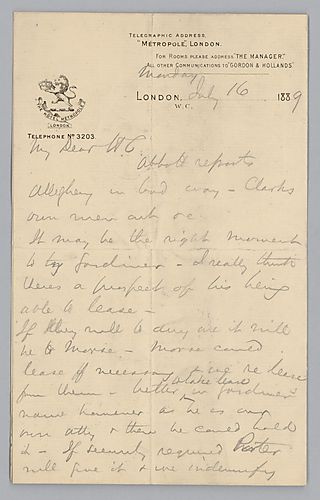 TELEGRAPHIC ADDRESS,
"METROPOLE", LONDON.
FOR ROOMS PLEASE ADDRESS "THE MANAGER."
ALL OTHER COMMUNICATIONS TO "GORDON & HOLLANDS"
Monday
LONDON, July 16 1889
W.C.
THE HOTEL METROPOLE
LONDON
TELEPHONE No 3203.
My Dear W.C.
Abbott reports
Allegheny in bad way - Clarks
own men out &c.
It may be the right moment
to try Gardiner - I really think
theres a prospect of his being
able to lease -
If they sell to day it will
be to Morse - Morse could
lease if necessary & we re lease
from them - better to take lease in Gardiners
name however as he is our
own atty & then he could hold
it - If security required Porter
will give it & we indemnify